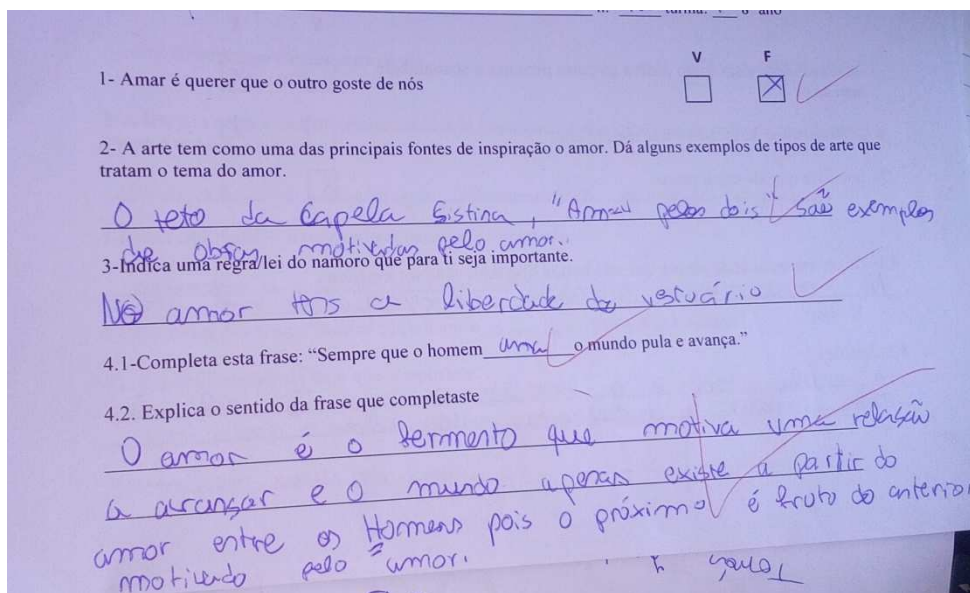 turma: 8º ano
V F
1- Amar é querer que o outro goste de nós
2- A arte tem como uma das principais fontes de inspiração o amor. Dá alguns exemplos de tipos de arte que
tratam o tema do amor.
O teto da Capela Sistina, "Amar pelos dois" são exemplos
de obras motivadas pelo amor.
3-Indica uma regra/lei do namoro que para ti seja importante.
No amor tens a liberdade do vestuário
4.1-Completa esta frase: “Sempre que o homem ama o mundo pula e avança.”
4.2. Explica o sentido da frase que completaste
O amor é o fermento que motiva uma relação
a avançar e o mundo apenas existe a partir do
amor entre os Homens pois o próximo é fruto do anterior
motivado pelo amor.